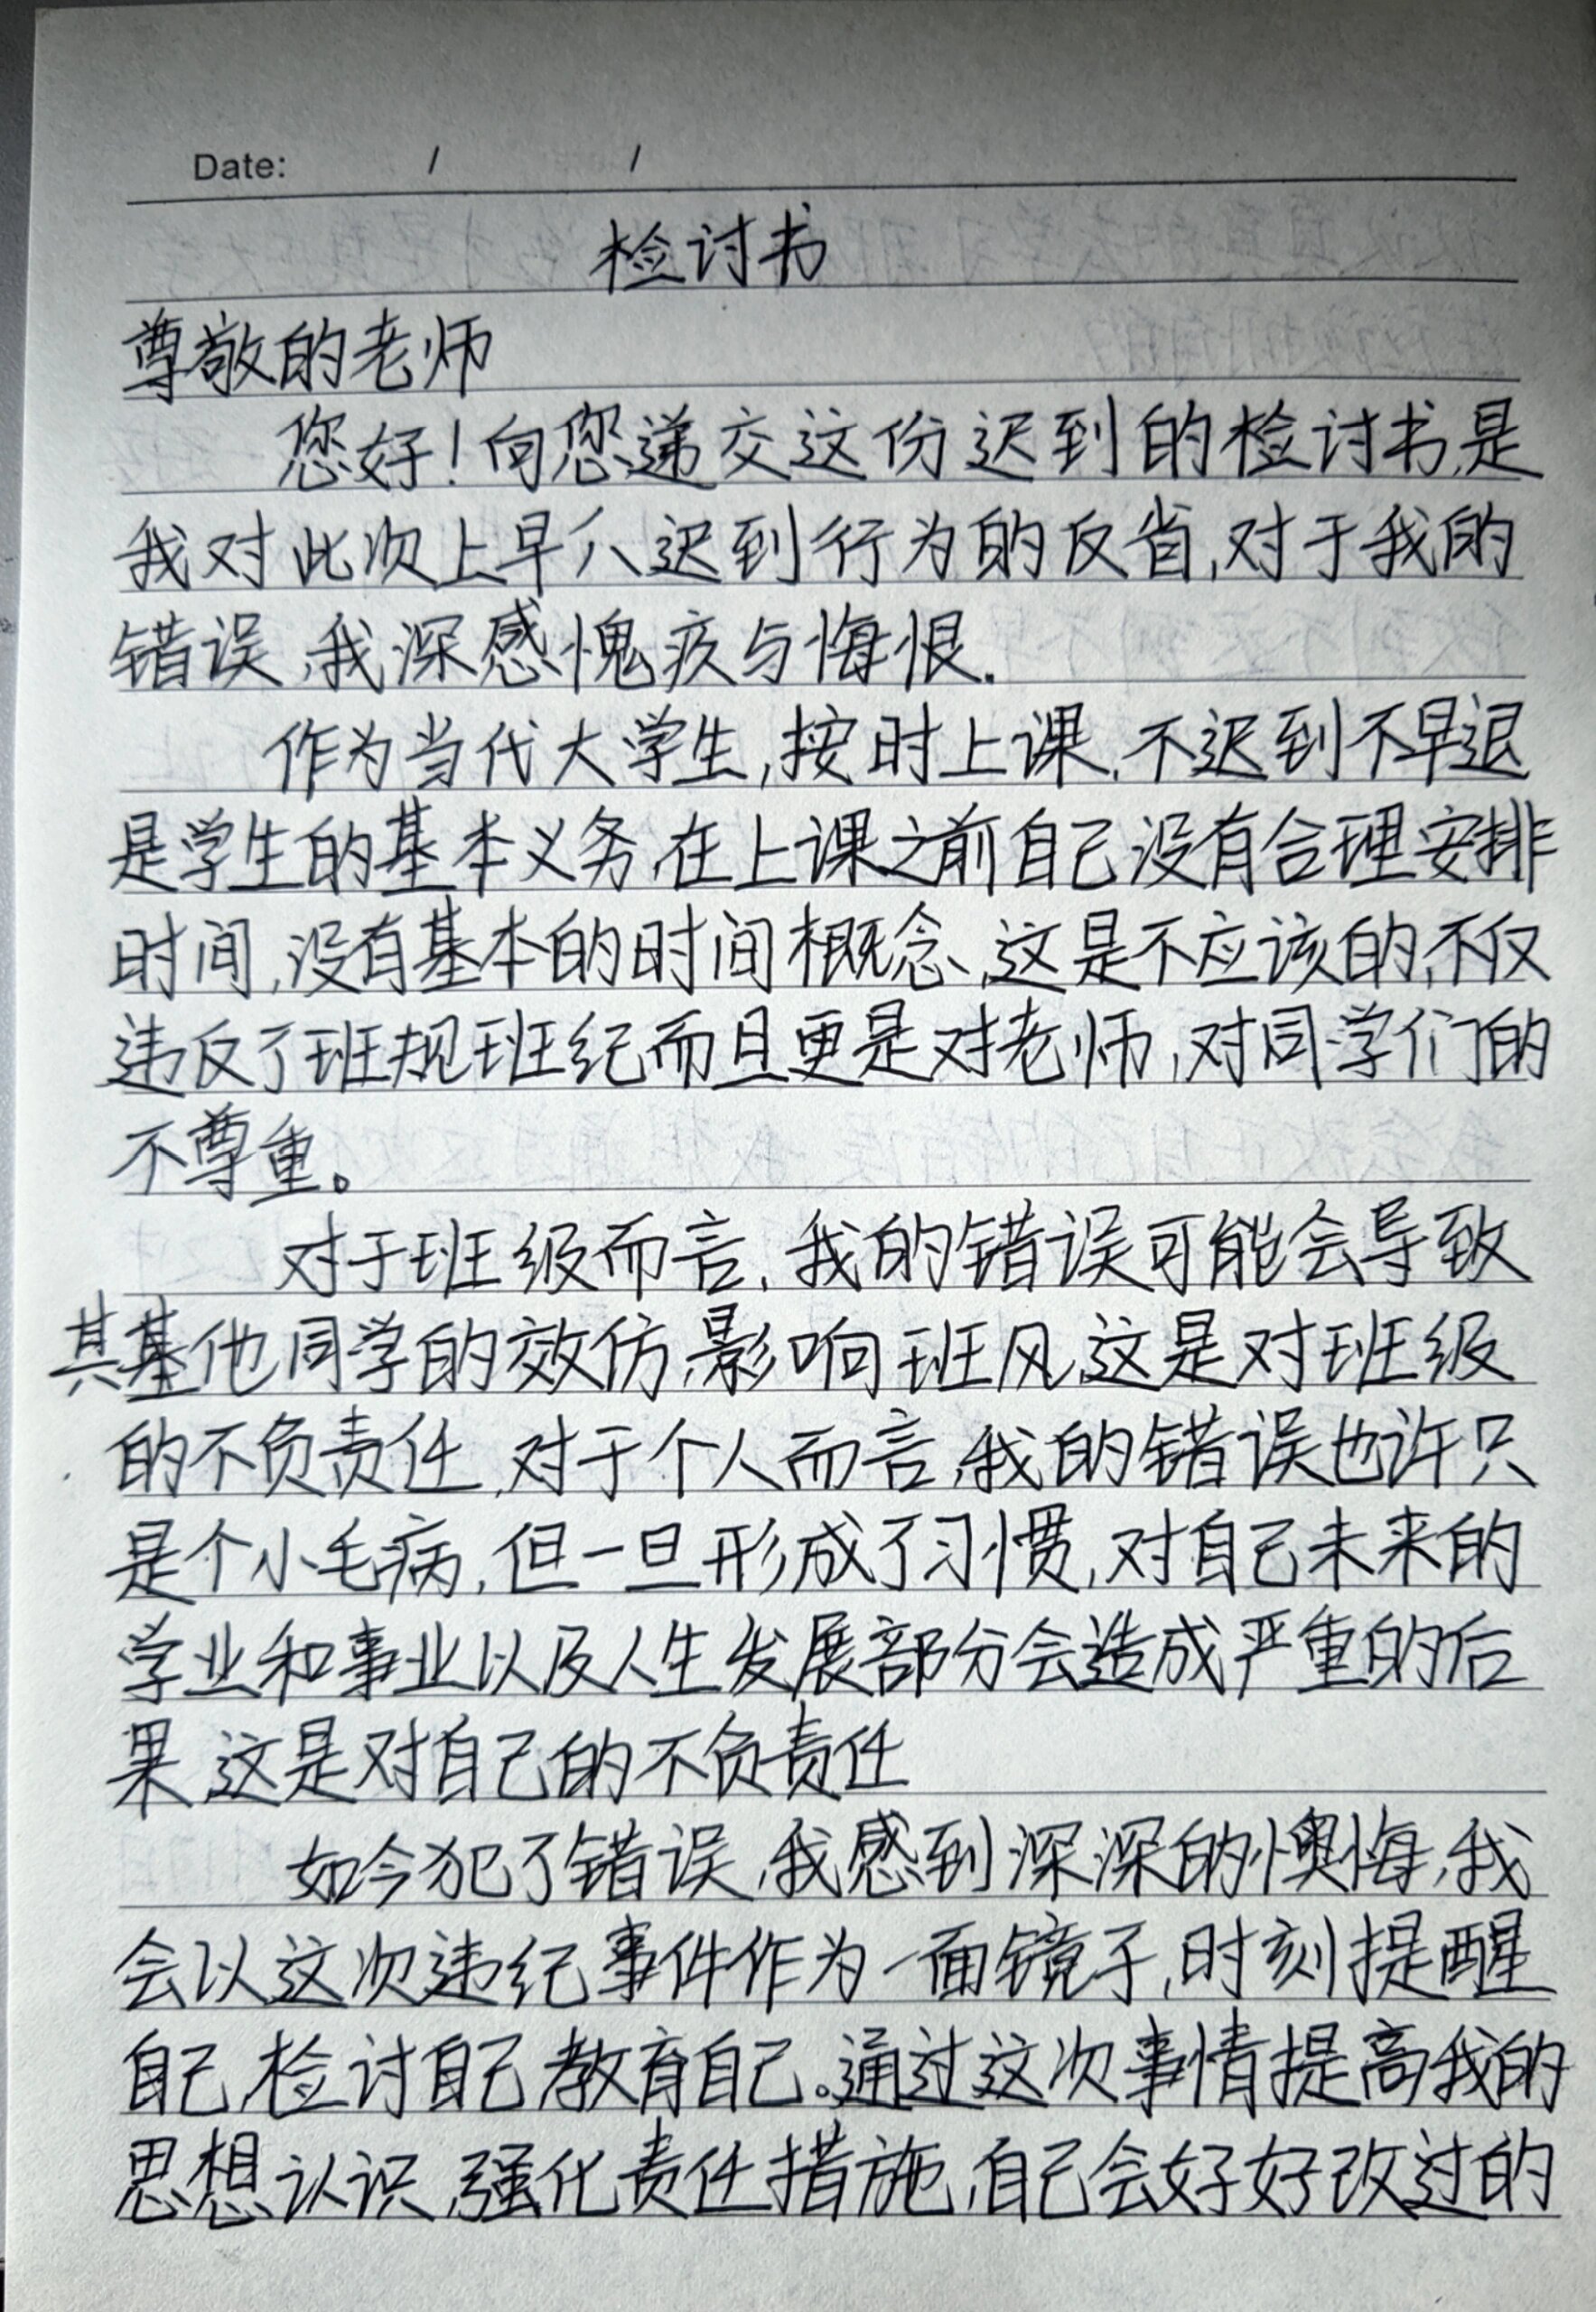 Date: / /
检讨书
尊敬的老师
您好!向您递交这份迟到的检讨书,是
我对此次上早八迟到行为的反省,对于我的
错误,我深感愧疚与悔恨.
作为当代大学生,按时上课,不迟到不早退
是学生的基本义务,在上课之前自己没有合理安排
时间,没有基本的时间概念,这是不应该的,不仅
违反了班规班纪而且更是对老师,对同学们的
不尊重。
对于班级而言,我的错误可能会导致
其他同学的效仿,影响班风,这是对班级
的不负责任,对于个人而言,我的错误也许只
是个小毛病,但一旦形成了习惯,对自己未来的
学业和事业以及人生发展部分会造成严重的后
果,这是对自己的不负责任
如今犯了错误,我感到深深的懊悔,我
会以这次违纪事件作为一面镜子,时刻提醒
自己,检讨自己,教育自己。通过这次事情提高我的
思想认识,强化责任措施,自己会好好改过的